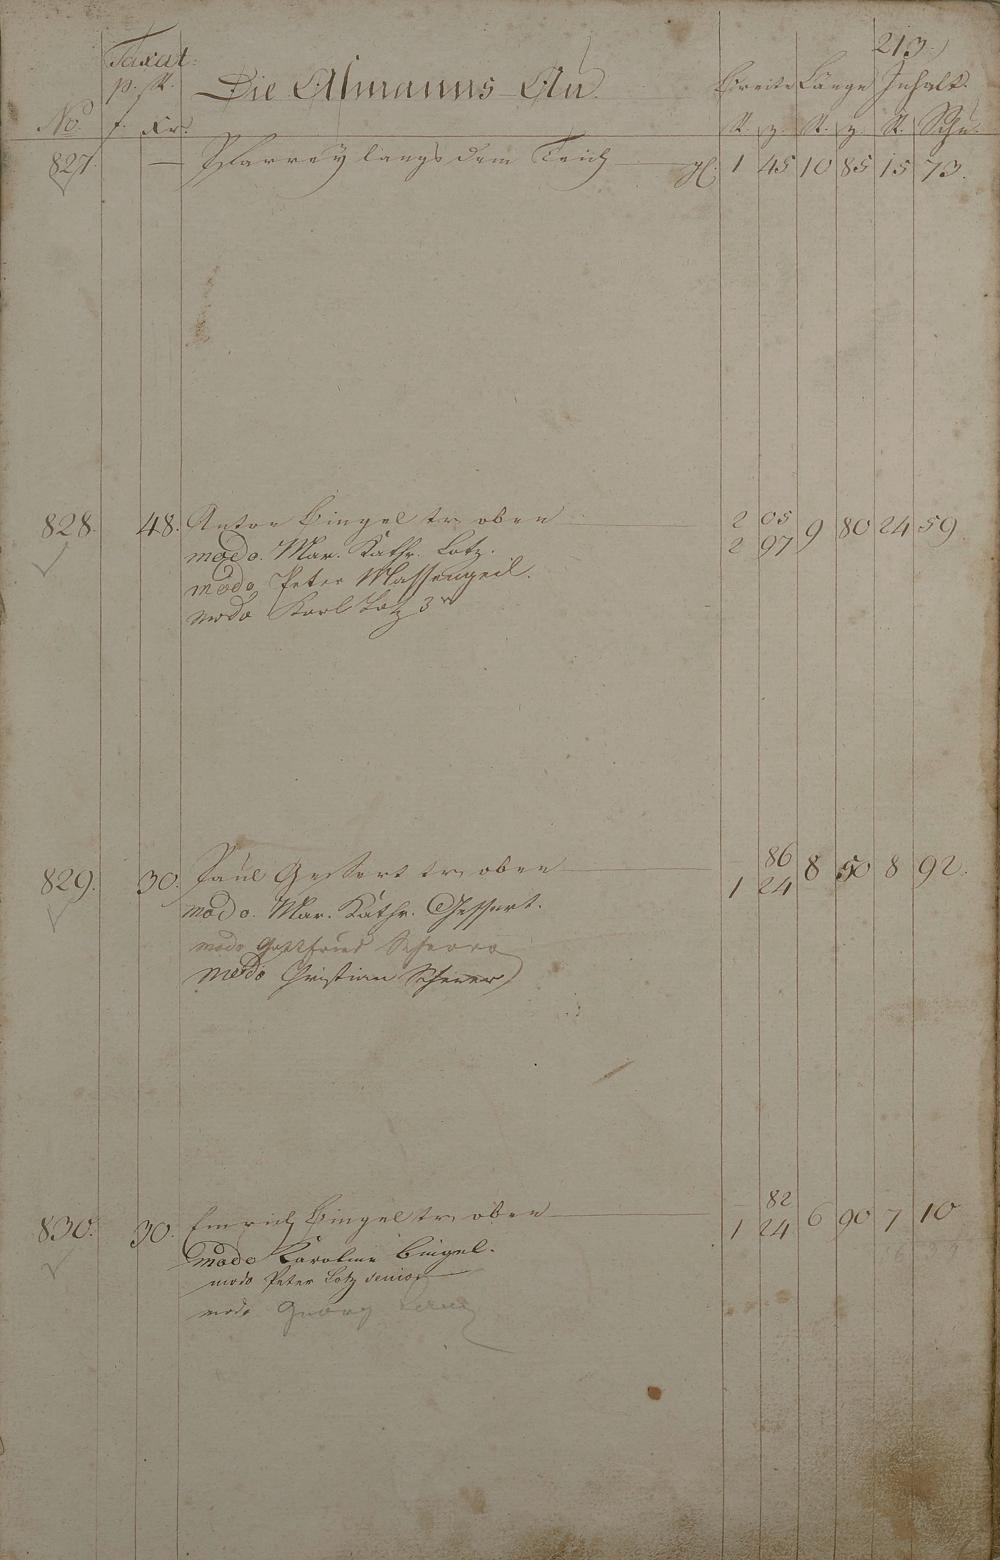 213.
Taxat: Die Allmanns Au. Breite Länge Inhalt.
p. R.
No. f. Xr. R. z. R. z. R. Sch.
827. — Pfarrey langs dem Teich gl. 1 45 10 85 15 73.
828. 48. Anton Bingel tr. oben 2 05 9 80 24 59
modo. Mar. Kathr. Lotz. 2 97
modo Peter Massengeil.
modo Karl Lotz 3r
829. 30. Paul Gessert tr. oben 86 8 50 8 92.
modo. Mar. Kathr. Gessert. 1 24
modo Gottfried
modo Christian Scherer
830. 30. Emrich Bingel tr. oben 82 6 90 7 10
modo Karoline Bingel. 1 24
modo Peter Lotz senior
modo Georg